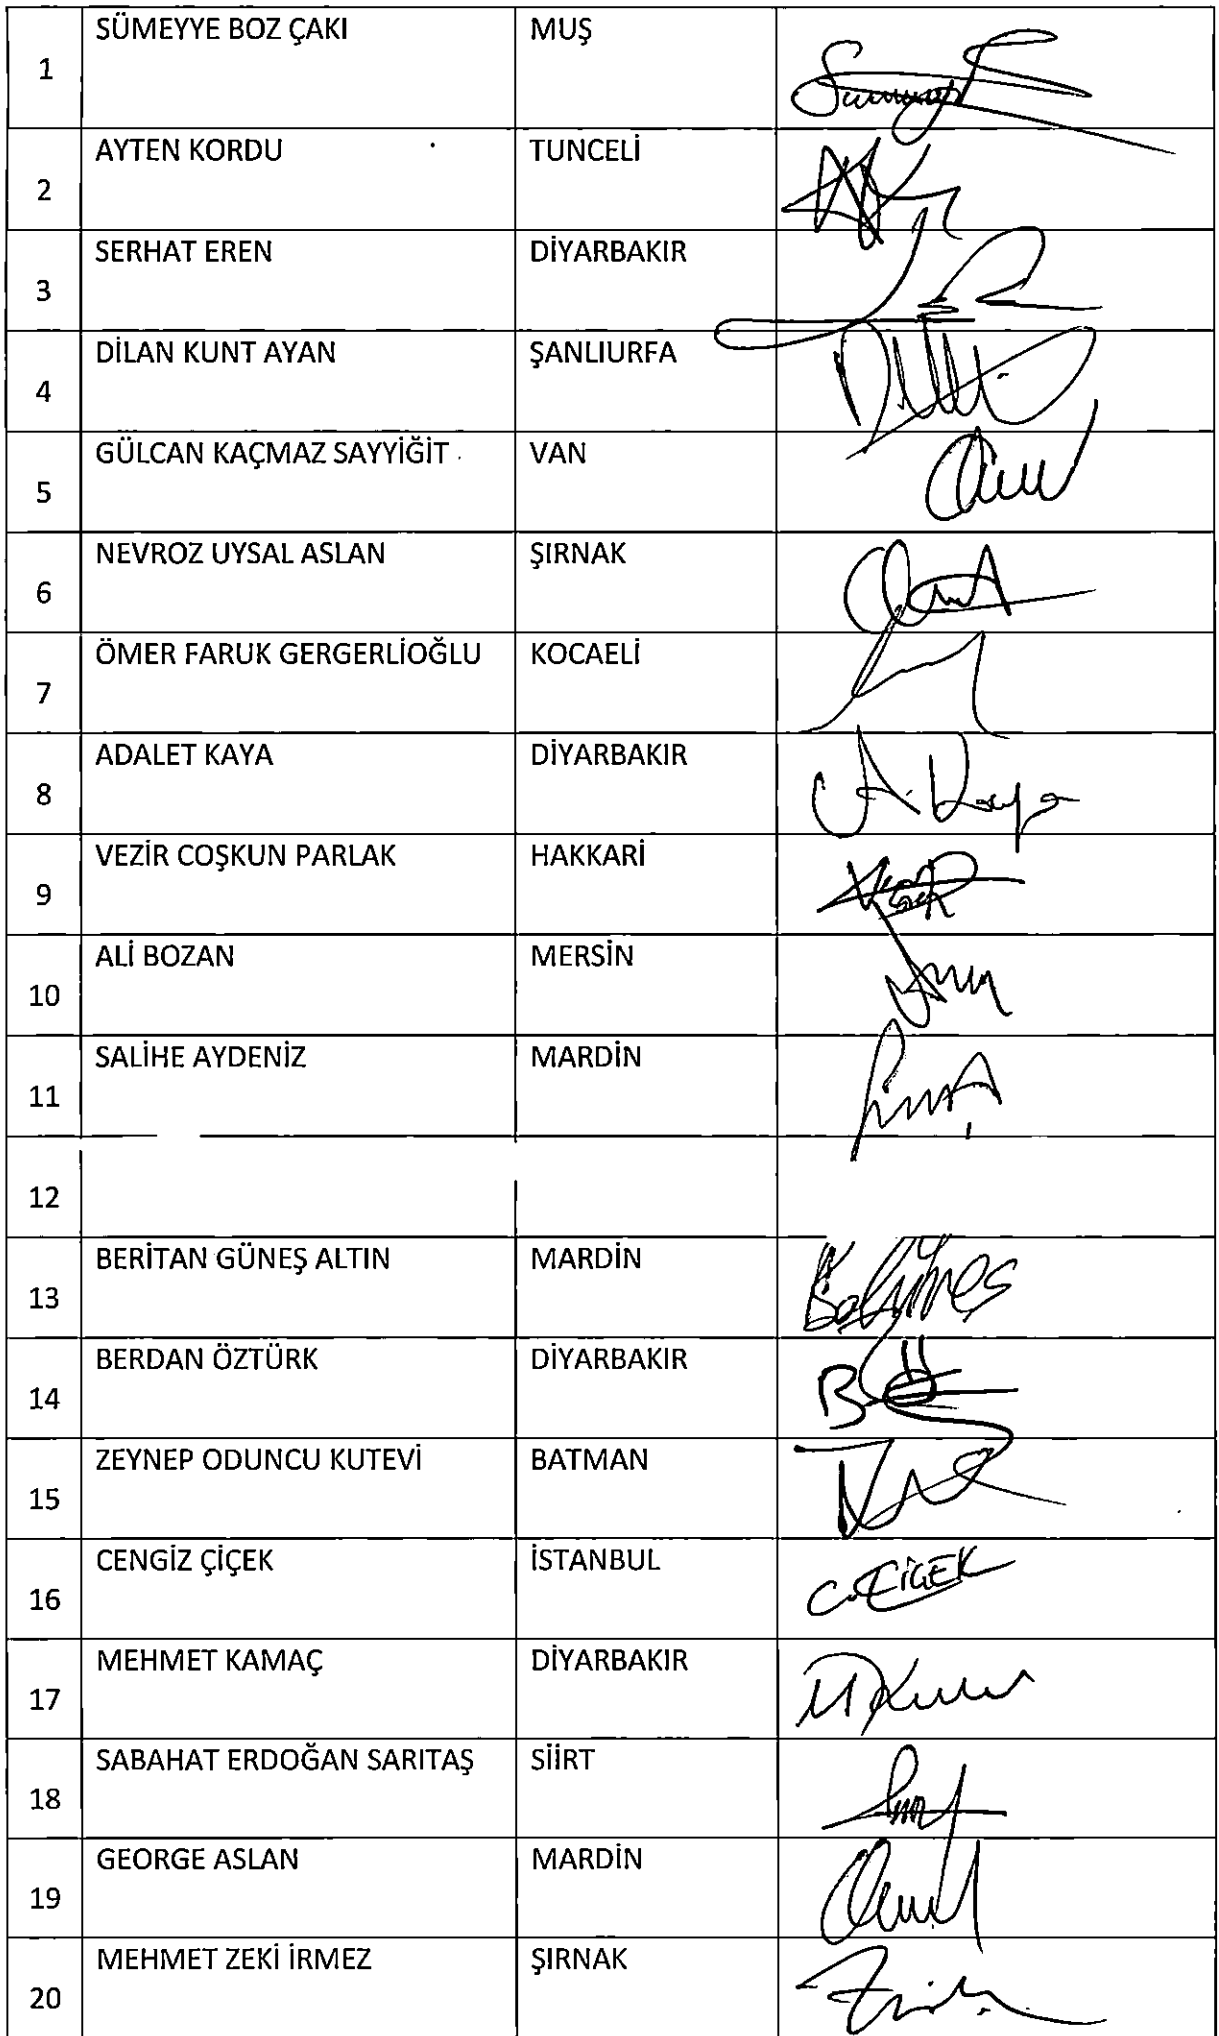 1 SÜMEYYE BOZ ÇAKI MUŞ
2 AYTEN KORDU TUNCELİ
3 SERHAT EREN DİYARBAKIR
4 DİLAN KUNT AYAN ŞANLIURFA
5 GÜLCAN KAÇMAZ SAYYİĞİT VAN
6 NEVROZ UYSAL ASLAN ŞIRNAK
7 ÖMER FARUK GERGERLİOĞLU KOCAELİ
8 ADALET KAYA DİYARBAKIR A. Kaya
9 VEZİR COŞKUN PARLAK HAKKARİ
10 ALİ BOZAN MERSİN
11 SALİHE AYDENİZ MARDİN
12
13 BERİTAN GÜNEŞ ALTIN MARDİN
14 BERDAN ÖZTÜRK DİYARBAKIR
15 ZEYNEP ODUNCU KUTEVİ BATMAN
16 CENGİZ ÇİÇEK İSTANBUL C. ÇİÇEK
17 MEHMET KAMAÇ DİYARBAKIR
18 SABAHAT ERDOĞAN SARITAŞ SİİRT
19 GEORGE ASLAN MARDİN
20 MEHMET ZEKİ İRMEZ ŞIRNAK